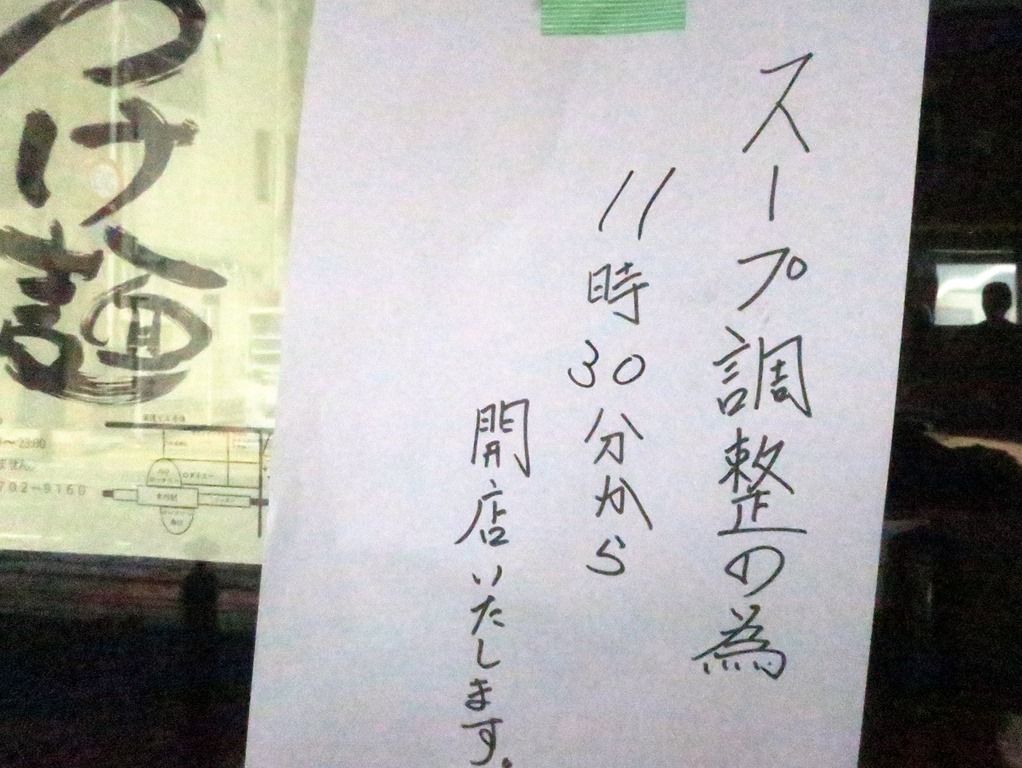 スープ調整の為
11時30分から
開店いたします。
つけ麺
702-9160